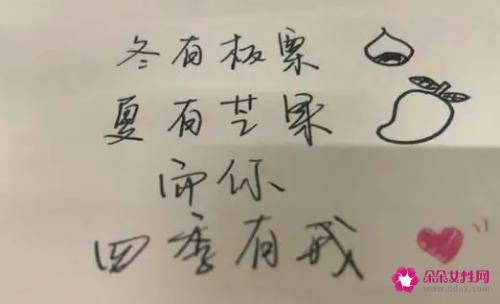 冬有板栗
夏有芒果
而你
四季有我
朵朵女性网
www.ddnx.com